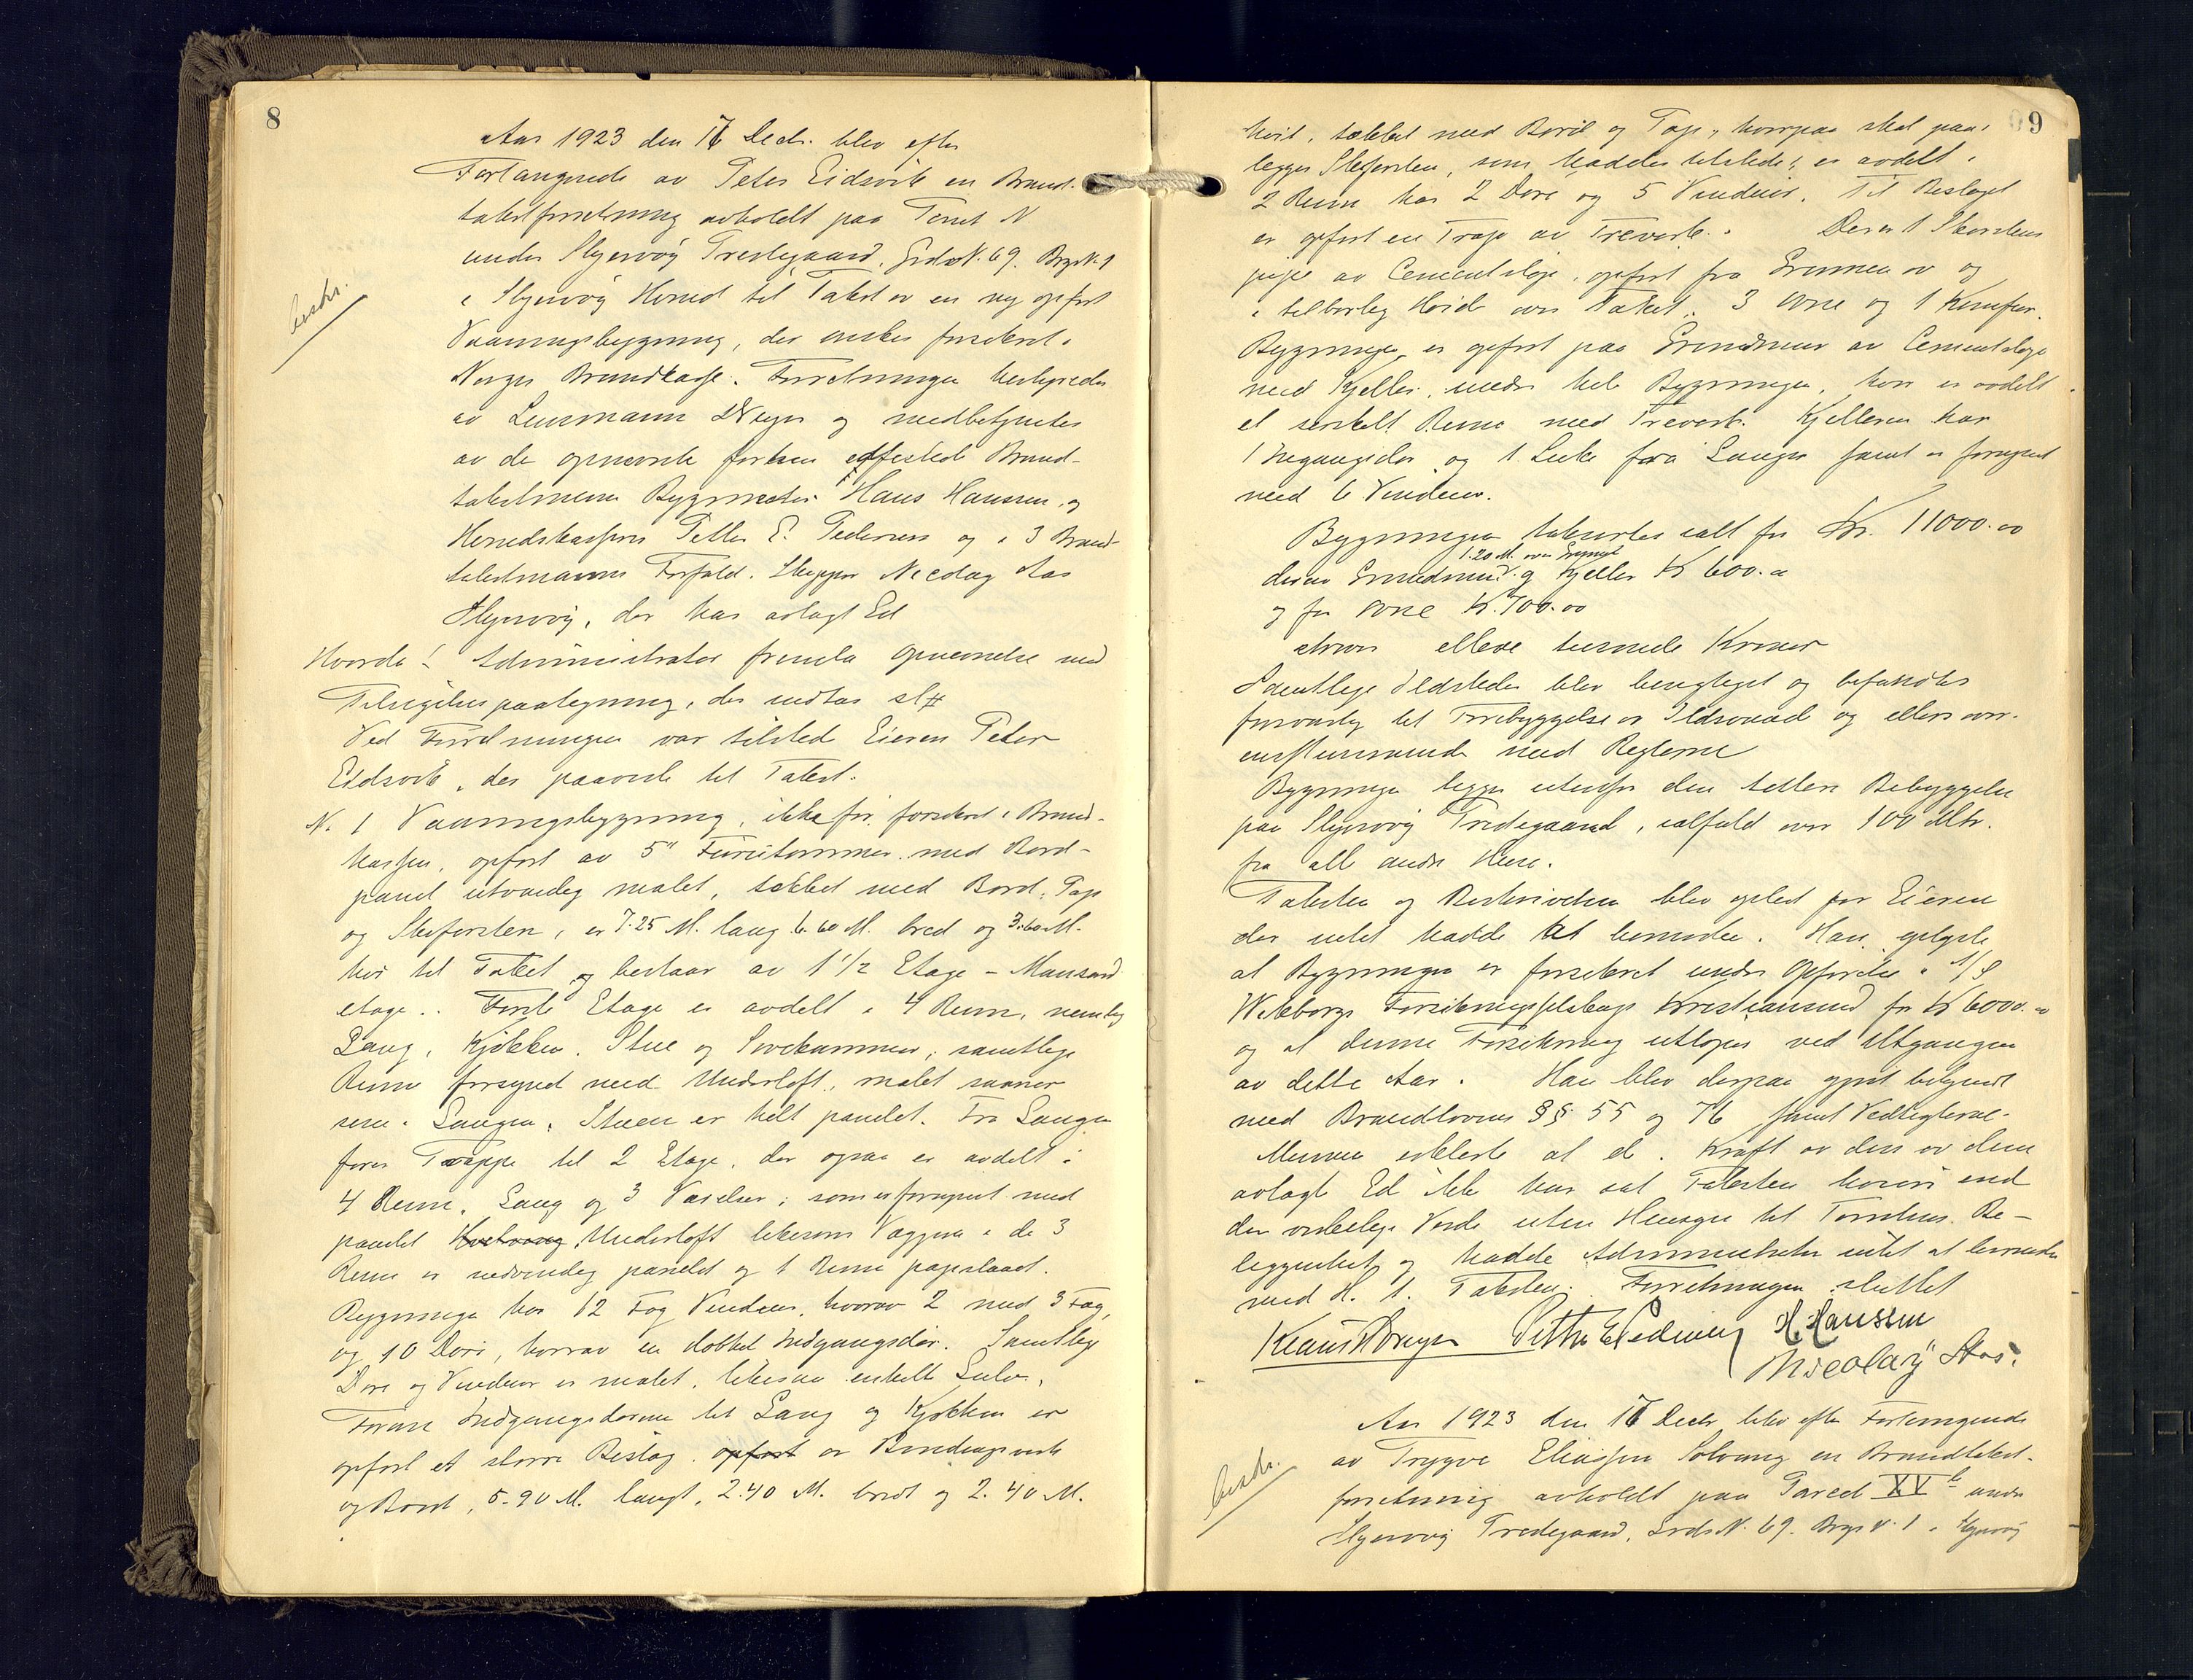 8
Aar 1923 den 17 Decbr. blev efter
Forlangende av Peter Eidsvik en Brand-
takstforretning avholdt paa Tomt N
under Skjervøy Prestegaard. Grds N. 69. Brgs N. 1
i Skjervøy Herred til Takst av en ny opført
Vaaningsbygning, der ønskes forsikret i
Norges Brandkasse. Forretningen bestyredes
av Lensmann Dreyer og medbetjentes
av de opnævnte forhen edfestede Brand-
takstmænn Bygmester Hans Hanssen og
Herredskasserer Petter E. Pedersen og i 3 Brand-
takstmanns Forfald. Skipper Nicolay Aas
Skjervøy, der har avlagt Ed
Hvorda! Administrator fremla Opnævnelse med
Tilsigelsespaategning, der indtas slt
Ved Forretningen var tilsted Eieren Peter
Eidsvik, der paaviste til Takst.
N. 1 Vaaningsbygning, ikke før forsikret i Brand-
kassen, opført av 5" Furutømmer med Bord-
panel utvendig malet, tækket med Bord, Pap
og Skifersten, er 7.25 M. lang 6.60 M. bred og 3.60 M.
høi til Taket og bestaar av 1 1/2 Etage - Mansard
etage. Første Etage er avdelt i 4 Rum, nemlig
Gang, Kjøkken, Stue og Sovekammer, samtlige
Rum forsynet med Underloft, malet
i Gangen. Stuen er helt panelet. Fra Gangen
fører Trappe til 2 Etage, der ogsaa er avdelt i
4 Rum, Gang og 3 Værelser, som er forsynet med
panelet Underloft likesom Væggene i de 3
Rum er indvendig panelet og 1 Rum papslaaet.
Bygningen har 12 Fag Vinduer, hvorav 2 med 3 Fag,
og 10 Dører, hvorav en dobbel Indgangsdør. Samtlige
Døre og Vinduer er malet, likesaa enkelte Gulv.
Foran Indgangsdørene til Gang og Kjøkken er
opført et større Bislag opført av Bindingsverk
og Bord, 5.90 M. langt, 2.40 M. bredt og 2.40 M.
bestr.
9
høit, tækket med Bord og Pap, hvorpaa skal paa-
legges Skifersten, som haddes tilstede, er avdelt i
2 Rum har 2 Døre og 5 Vinduer. Til Bislaget
er opført en Trap av Træverk. Der er 1 Skorstens
pipe av Cementsløp, opført fra Grunnen av og
i tilbørlig Høide over Taket. 3 Ovne og 1 Komfyr.
Bygningen er opført paa Grundmur av Cementsløp
med Kjeller under hele Bygningen, hvor er avdelt
et særskilt Rum med Træverk. Kjelleren har
1 Indgangsdør og 1 Luke fra Gangen samt er forsynet
med 6 Vinduer.
Bygningen takseres ialt for Kr. 11000.00
1.20 M. over
derav Grundmur og Kjeller Kr 600.00
og for Ovne Kr. 700.00
skriver elleve tusende Kroner
Samtlige Ildsteder blev besigtiget og befandtes
forsvarlig til Forebyggelse av Ildsvaade og ellers over-
ensstemmende med Reglerne
Bygningen ligger utenfor den tættere Bebyggelse
paa Skjervøy Prestegaard, ialfald over 100 Mtr.
fra alle andre Huse.
Taksten og Beskrivelsen blev oplæst for Eieren
der intet hadde at bemerke. Han oplyste
at Bygningen er forsikret under Opførelse i A/S
Wikborgs Forsikringsselskap Kristiansund for Kr 6000.00
og at denne Forsikring utløper ved Utgangen
av dette Aar. Han blev derpaa gjort bekjendt
med Brandlovens §§ 55 og 76 samt Vedtægterne.
Mænnene erklærte at de i Kraft av den av dem
avlagte Ed ikke har sat Taksten høiere end
den virkelige Verdi uten Hensyn til Tomtens Be-
liggenhet og hadde Administrator intet at bemerke
med H. t. Taksten. Forretningen sluttet
Klaus Dreyer Petter E Pedersen H. Hanssen
Nicolaÿ Aas.
Aar 1923 den 17 Decbr blev efter Forlangende
av Trygve Eliassen Solvang en Brandtakst-
forretning avholdt paa Parcel XV b under
Skjervøy Prestegaard, Grds N. 69. Brgs N. 1 i Skjervøy
bestr.